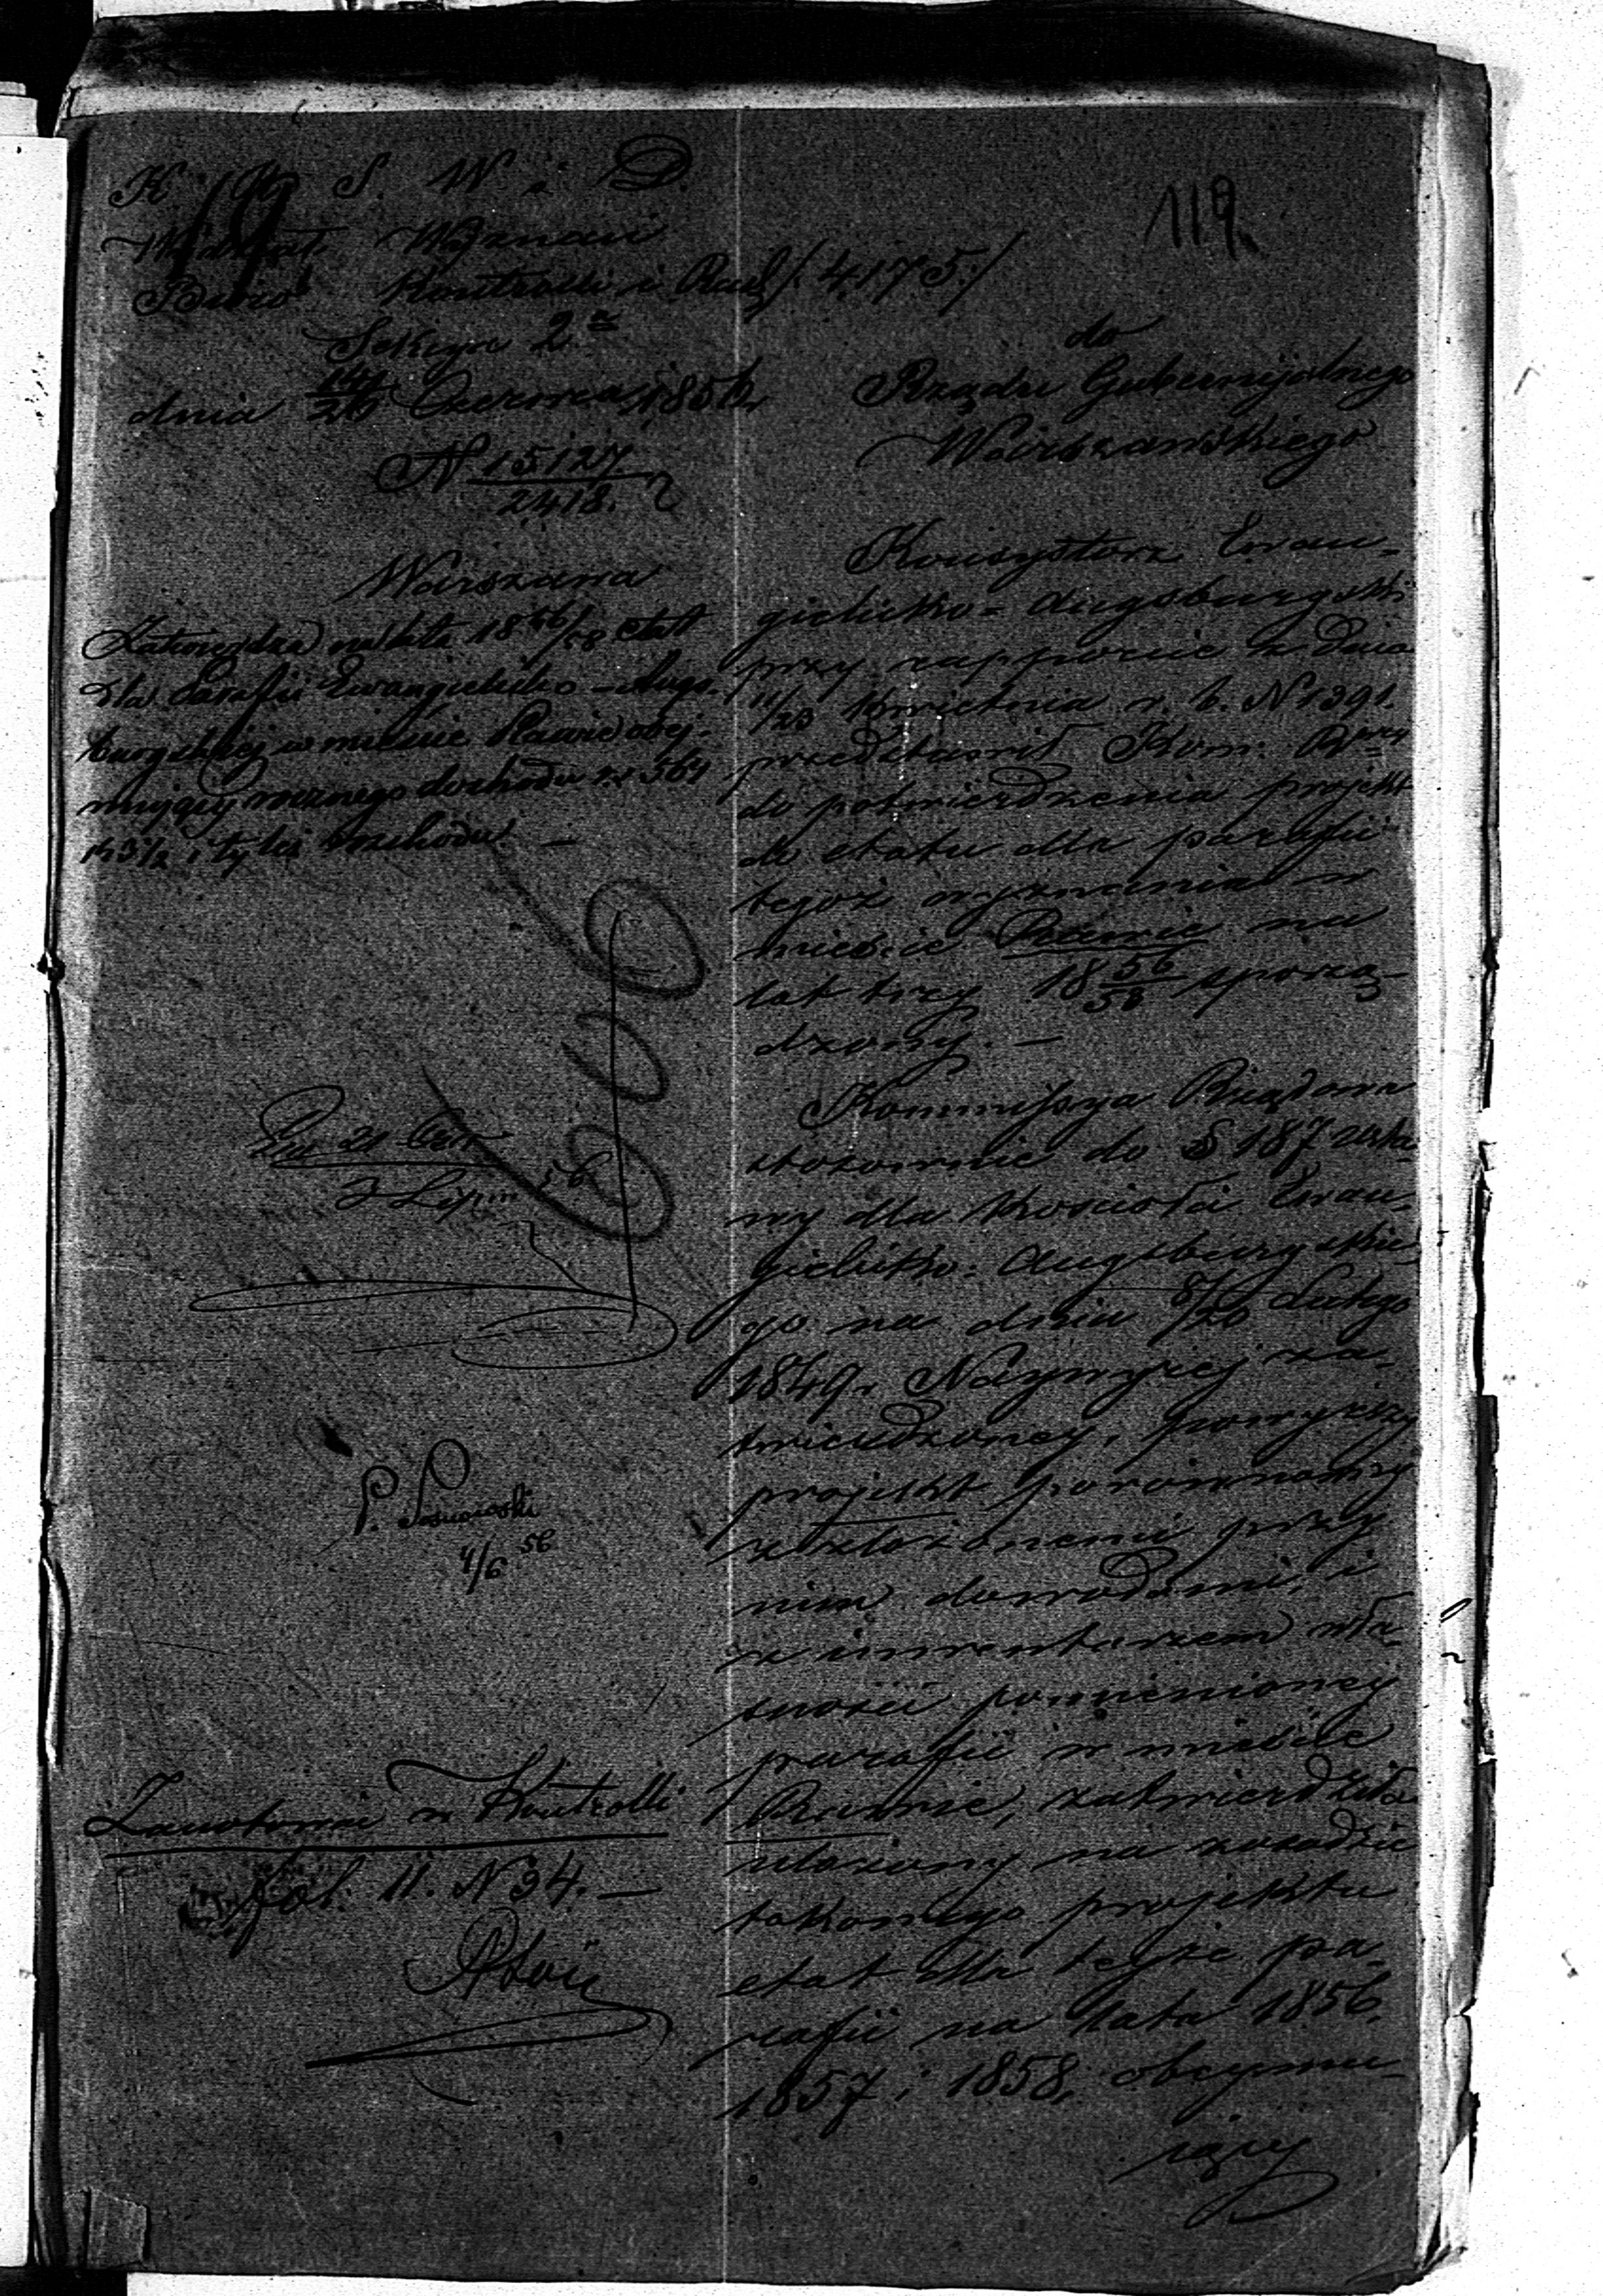 K. R. S. W. i D.
19
Wydział Wyznań
Biuro Kontrolli i Rach /4175/
Sekcya 2a
dnia 14/26 Czerwca 1856
N 15127/2418.
Warszawa
Zatwierdza na lata 1856/58 Etat
dla Parafii Ewangielicko-Augs-
burgskiej w mieście Rawie obej-
mujący rocznego dochodu rs 564
k 3 1/2 i tyleż rozchodu. —
56
P. Sosnowski
4/6 56
Zanotowano w Kontrolli
fol. 11. N 34. —
119
do
Rządu Gubernijalnego
Warszawskiego
Konsystorz Ewan-
gielicko-Augsburgski
przy rapporcie z dnia
11/23 Kwietnia r. b. N 1391.
przedstawił Kom. Rząd
do potwierdzenia projekt
do etatu dla parafii
tegoż wyznania w
mieście Rawie na
lat trzy 1856/58 sporzą-
dzony. —
Kommissya Rządowa
stosownie do § 187 usta-
wy dla Kościoła Ewan-
gielicko-Augsburgskie-
go na dniu 8/20 Lutego
1849 r. Najwyżej za-
twierdzonej, powyższy
projekt porównawszy
z złożonemi przy
nim dowodami, i
z inwentarzem wła-
sności pomienionej
parafii w mieście
Rawie, zatwierdziła
ułożony na zasadzie
takowego projektu
etat dla tejże pa-
rafii na lata 1856.
1857 i 1858, obejmu-
jący